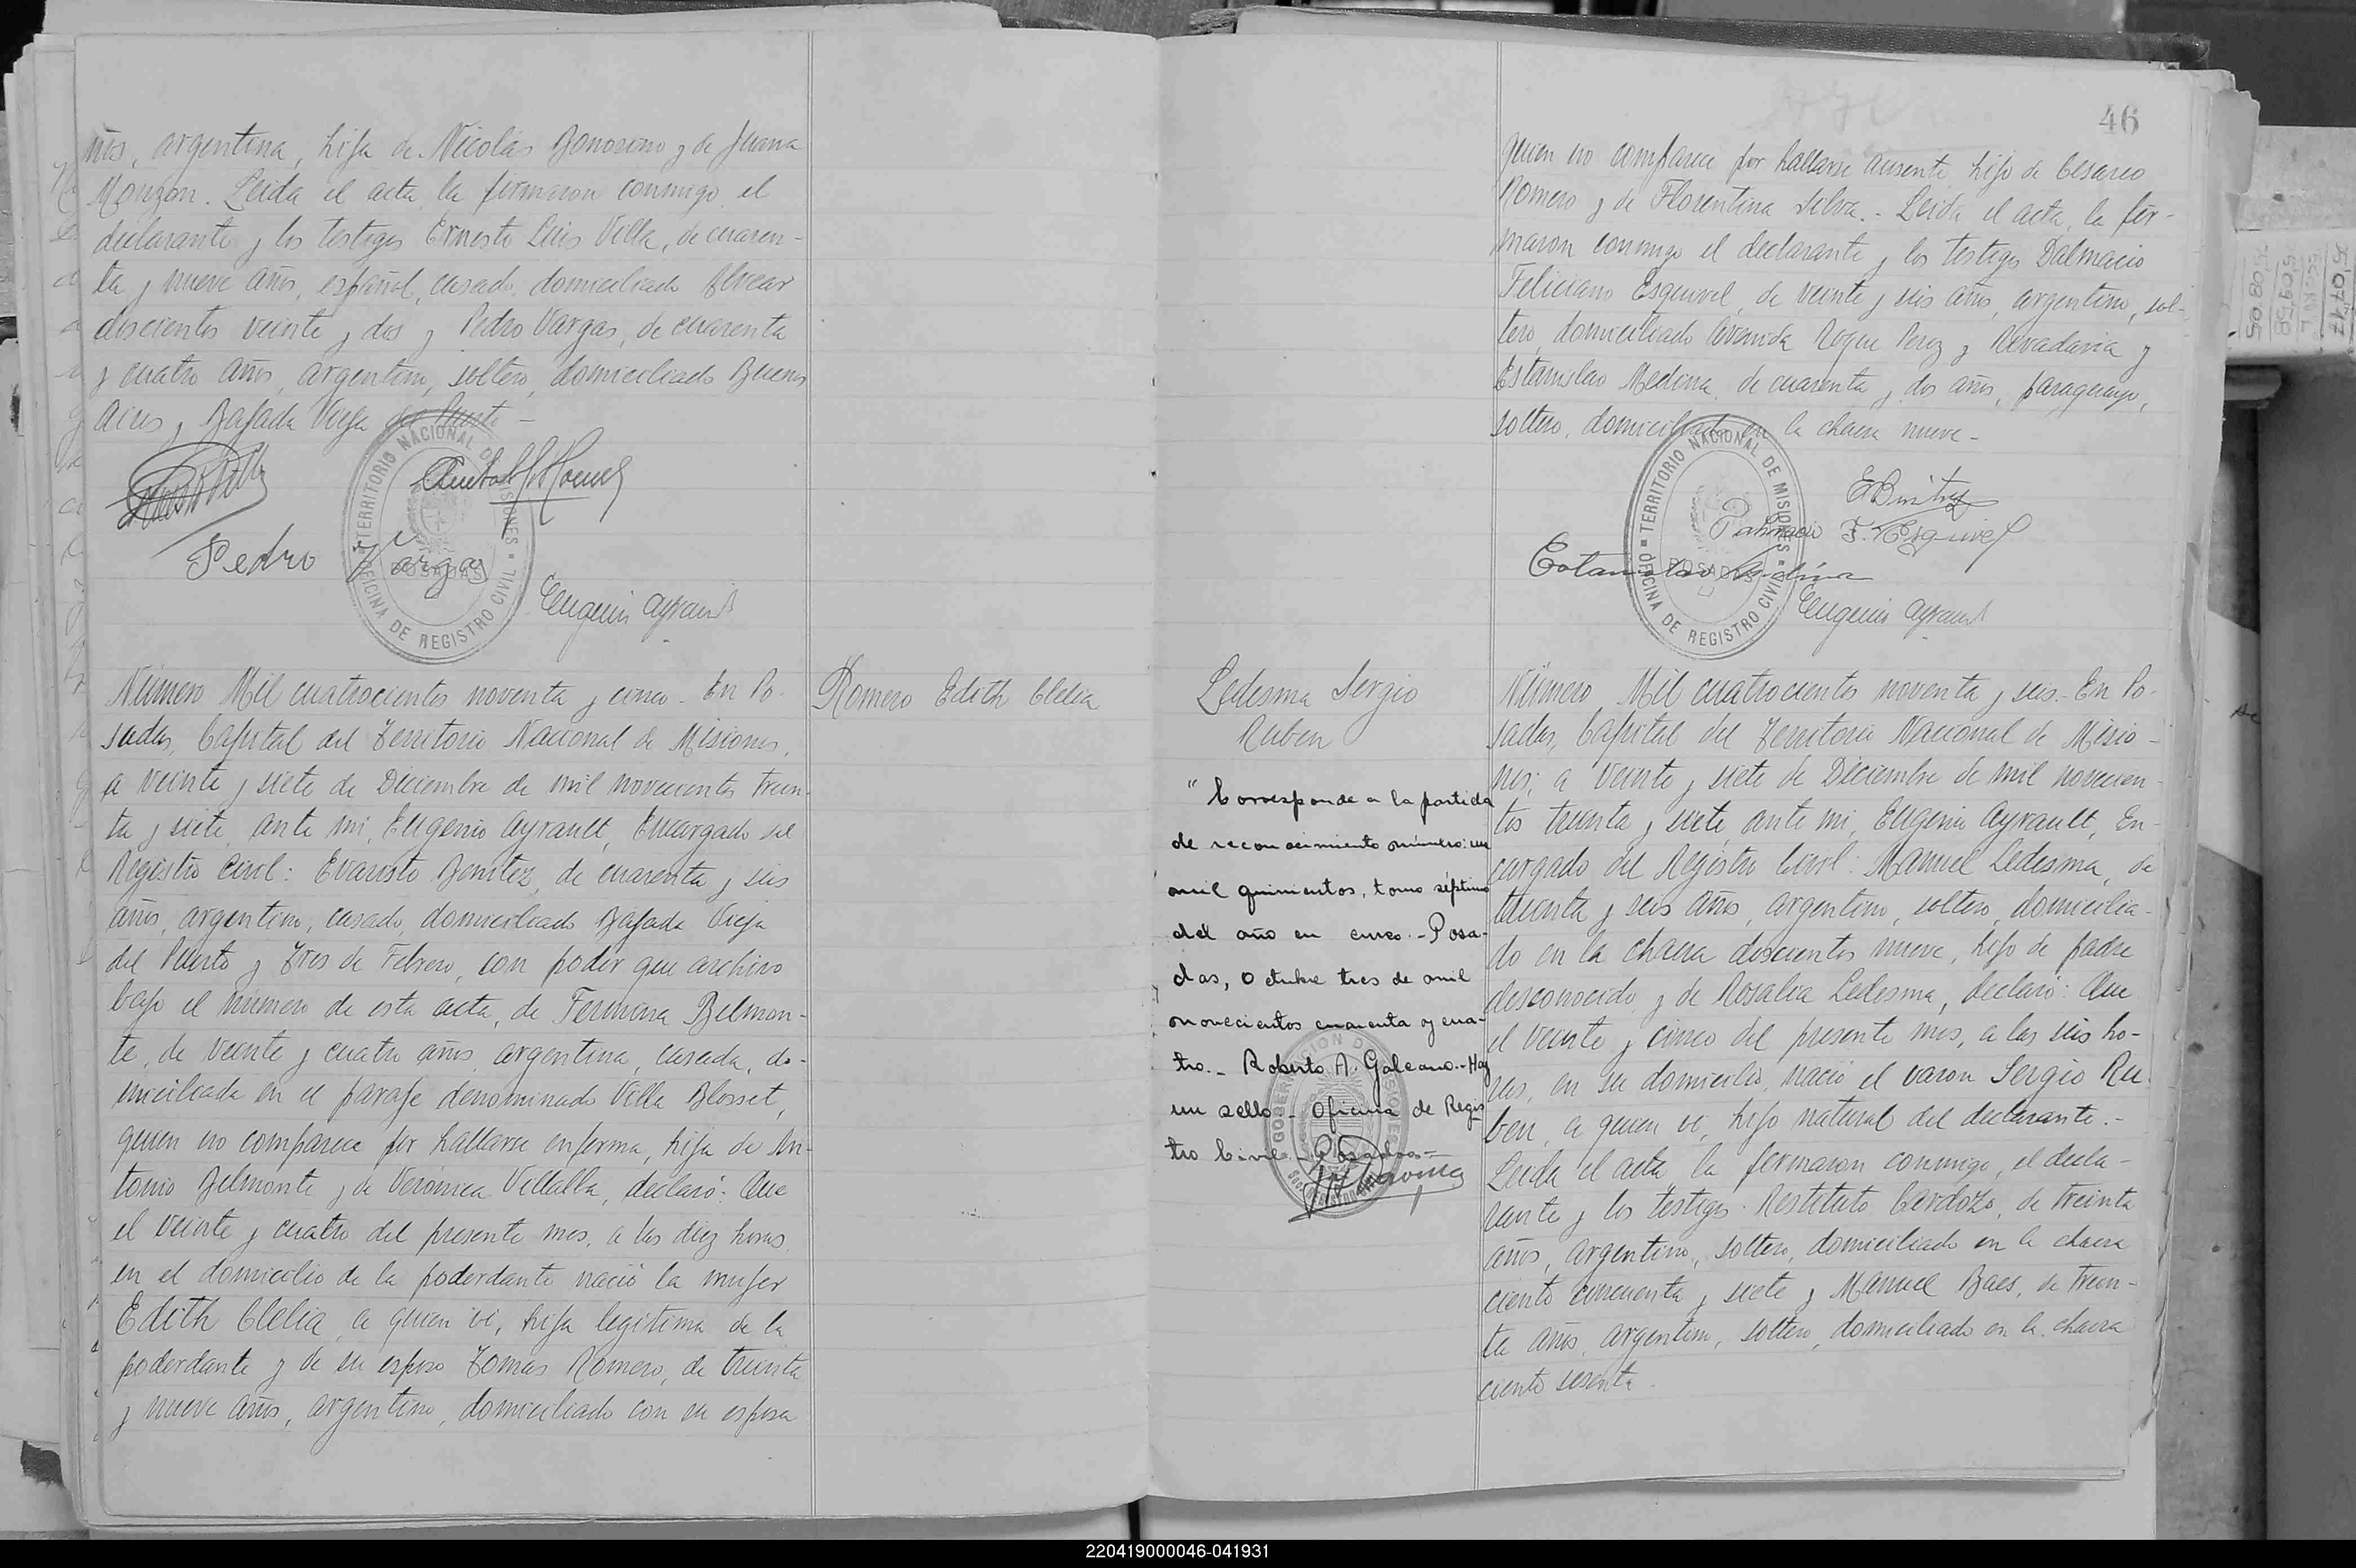 ños, argentina, hija de Nicolás Bonorino y de Juana
Monzon. Leida el acta, la firmaron conmigo, el
declarante y los testigos Ernesto Luis Villa, de cuaren-
ta y nueve años, español, casado, domiciliado Alvear
doscientos veinte y dos y Pedro Vargas, de cuarenta
y cuatro años, argentino, soltero, domiciliado Buenos
Aires y Bajada Vieja del Puerto -
TERRITORIO NACIONAL DE MISIONES
POSADAS
OFICINA DE REGISTRO CIVIL
Pedro Vargas
Eugenio Ayrault
Número Mil cuatrocientos noventa y cinco - En Po-
sadas, Capital del Territorio Nacional de Misiones,
a veinte y siete de Diciembre de mil novecientos trein-
ta y siete, ante mi, Eugenio Ayrault, Encargado del
Registro Civil: Evaristo Benitez, de cuarenta y seis
años, argentino, casado, domiciliado Bajada Vieja
del Puerto y Tres de Febrero, con poder que archivo
bajo el número de esta acta, de Fermina Belmon-
te, de veinte y cuatro años, argentina, casada, do-
miciliada en el paraje denominado Villa Blosset,
quien no comparece por hallarse enferma, hija de An-
tonio Belmonte y de Verónica Villalla, declaró: Que
el veinte y cuatro del presente mes, a las diez horas,
en el domicilio de la poderdante nació la mujer
Edith Clelia, a quien vi, hija legitima de la
poderdante y de su esposo Tomas Romero, de treinta
y nueve años, argentino, domiciliado con su esposa
Romero Edith Clelia
46
quien no comparece por hallarse ausente hijo de Cesareo
Romero y de Florentina Silva. - Leida el acta, la fir-
maron conmigo el declarante y los testigos Dalmacio
Feliciano Esquivel, de veinte y seis años, argentino, sol-
tero, domiciliado Avenida Roque Perez y Rivadavia y
Estanislao Medina, de cuarenta y dos años, paraguayo,
soltero, domiciliado en la chacra nueve -
TERRITORIO NACIONAL DE MISIONES
POSADAS
OFICINA DE REGISTRO CIVIL
EBenitez
Dalmacio F. Esquivel
Estanislao Medina
Eugenio Ayrault
Ledesma Sergio
Ruben
" Corresponde a la partida
de reconocimiento número: un
mil quinientos, tomo séptimo
del año en curso. - Posa-
das, Octubre tres de mil
novecientos cuarenta y cua-
tro. - Roberto A. Galeano. - Hay
un sello - Oficina de Regis
tro Civil - Posadas -
Número Mil cuatrocientos noventa y seis - En Po-
sadas, Capital del Territorio Nacional de Misio-
nes, a veinte y siete de Diciembre de mil novecien-
tos treinta y siete ante mi, Eugenio Ayrault, En-
cargado del Registro Civil: Manuel Ledesma, de
treinta y seis años, argentino, soltero, domicilia-
do en la chacra doscientos nueve, hijo de padre
desconocido y de Rosalia Ledesma, declaró: Que
el veinte y cinco del presente mes, a las seis ho-
ras, en su domicilio, nació el varon Sergio Ru-
ben, a quien vi, hijo natural del declarante. -
Leida el acta, la firmaron conmigo, el decla-
rante y los testigos Restituto Cardozo, de treinta
años, argentino, soltero, domiciliado en la chacra
ciento cincuenta y siete y Manuel Baes, de trein-
ta años, argentino, soltero, domiciliado en la chacra
ciento sesenta.
220419000046-041931